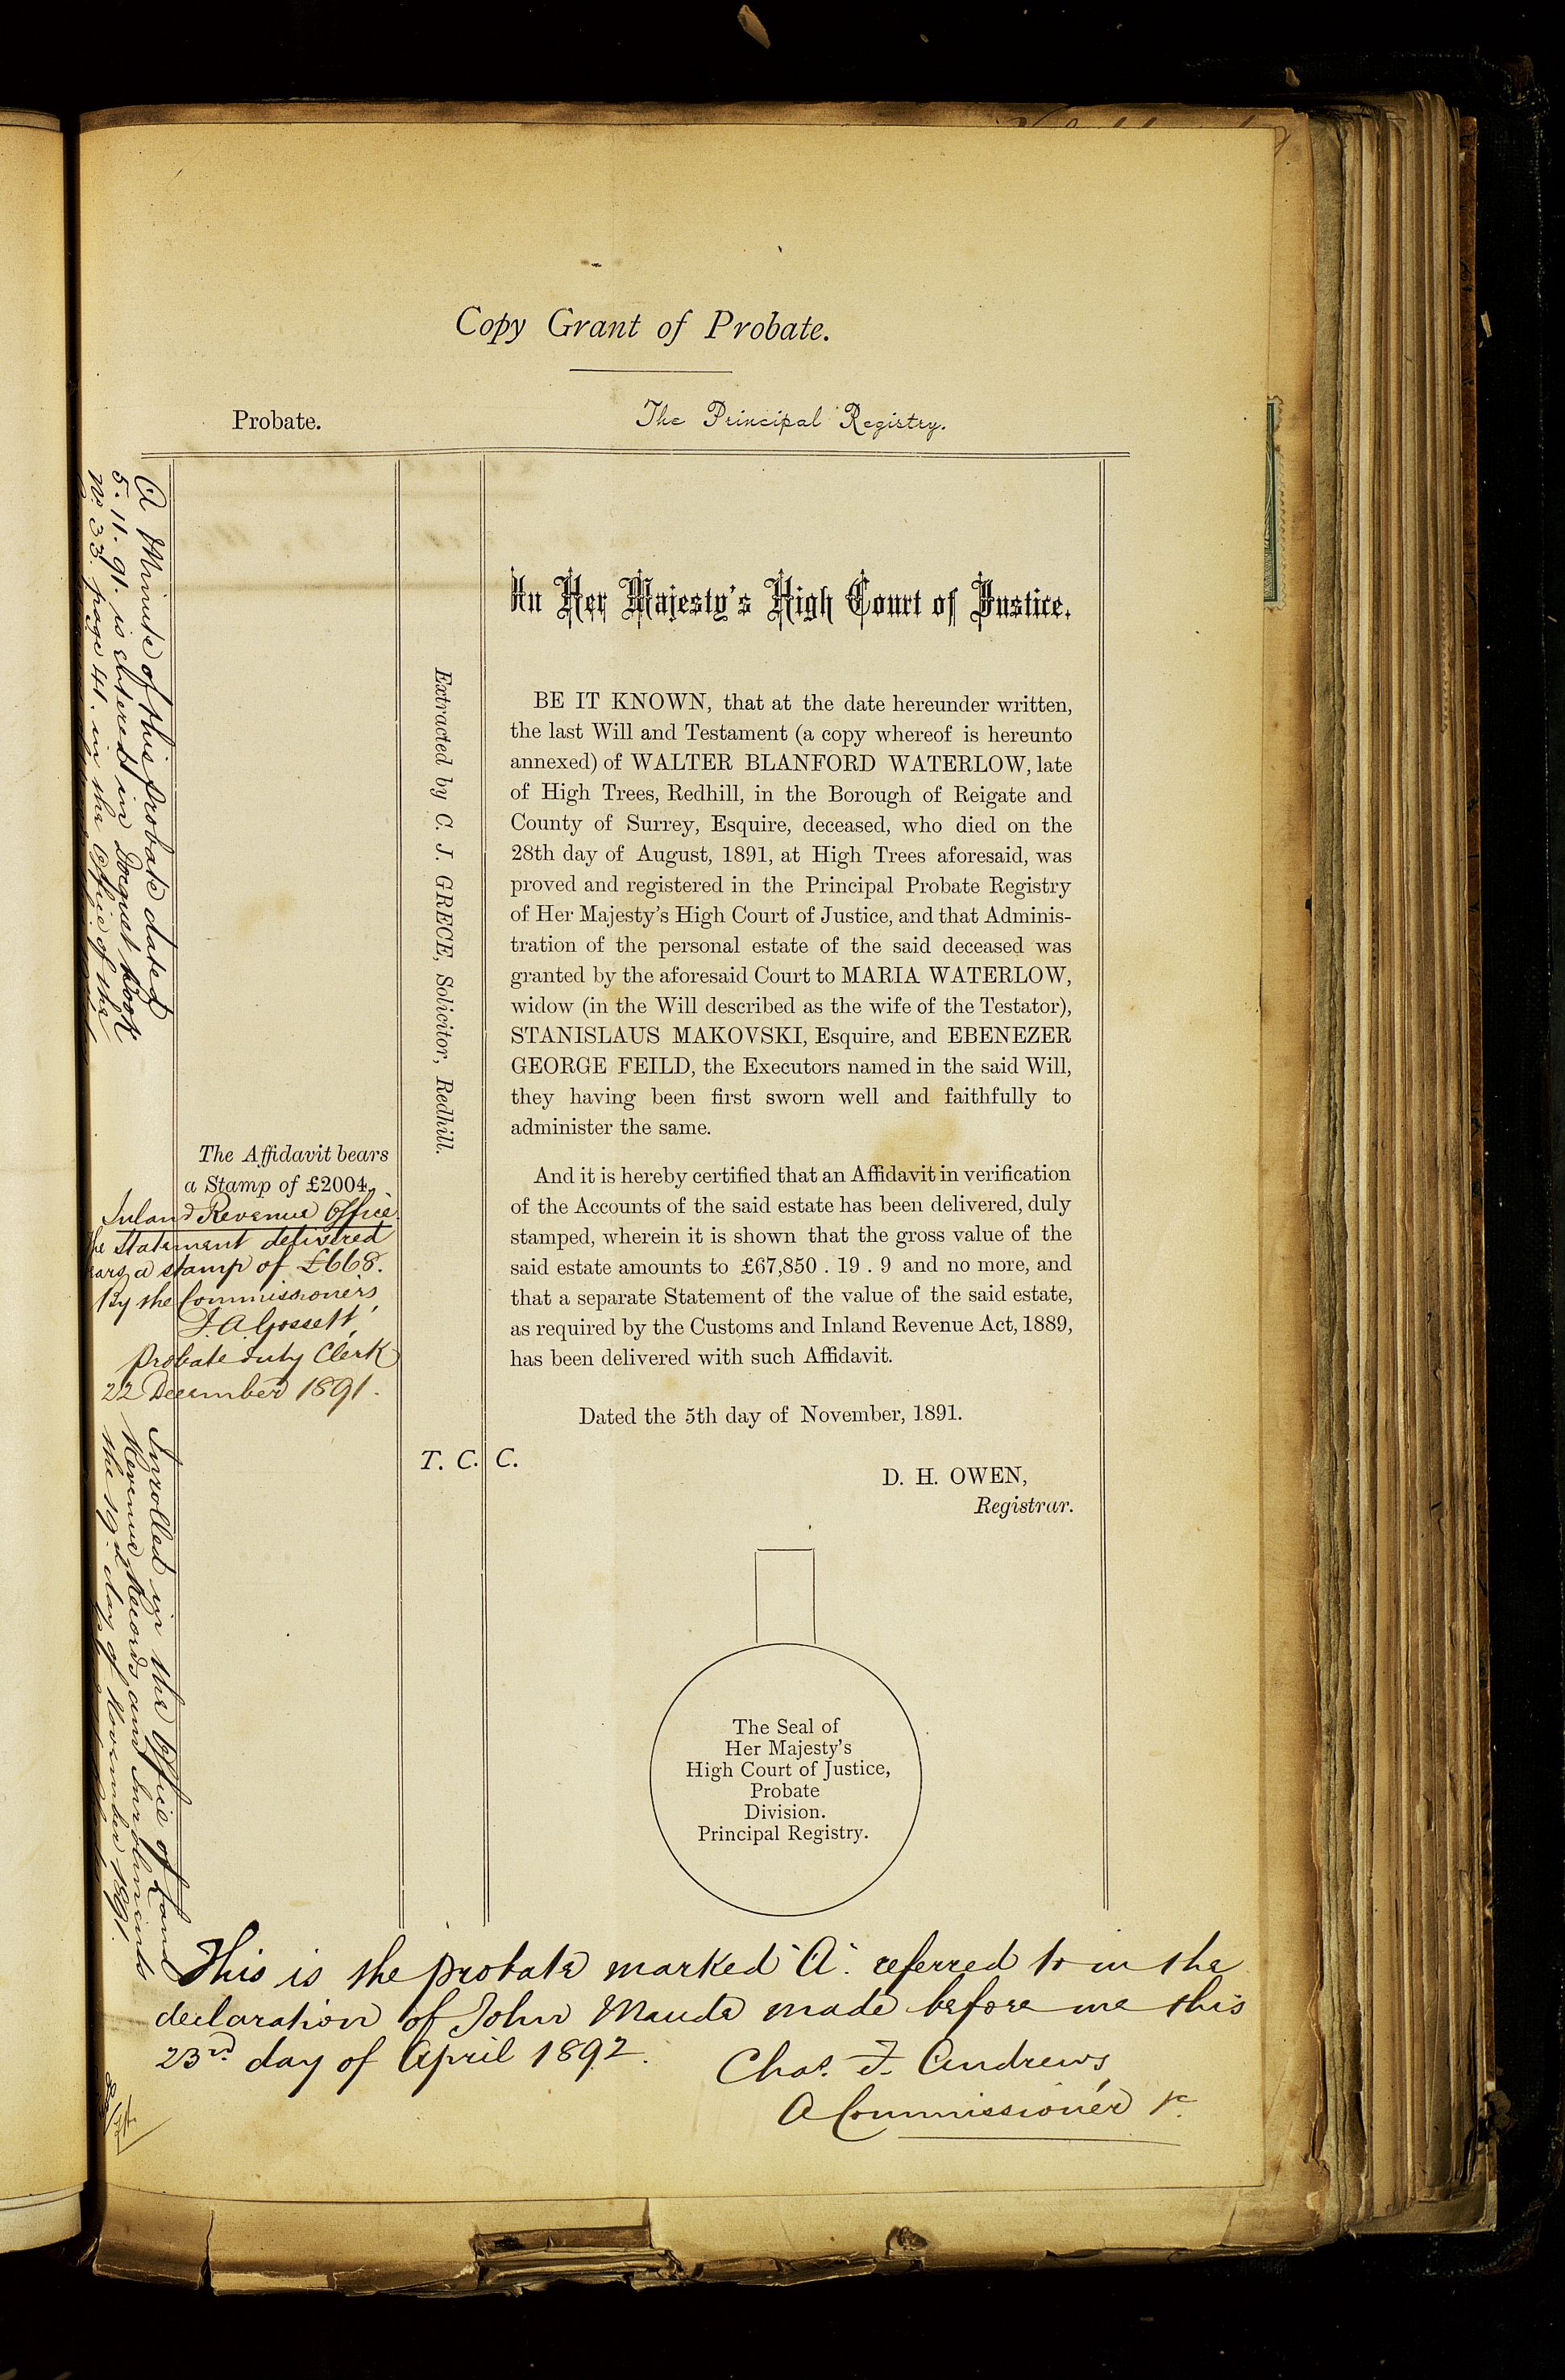 Copy Grant of Probate.
Probate.
The Principal Registry.
A Minute of this probate dated
5. 11. 91. is entered in Docquet book
No. 33. page 41. in the Office of the
Extracted by C. J. GRECE, Solicitor, Redhill.
In Her Majesty's High Court of Justice.
BE IT KNOWN, that at the date hereunder written,
the last Will and Testament (a copy whereof is hereunto
annexed) of WALTER BLANFORD WATERLOW, late
of High Trees, Redhill, in the Borough of Reigate and
County of Surrey, Esquire, deceased, who died on the
28th day of August, 1891, at High Trees aforesaid, was
proved and registered in the Principal Probate Registry
of Her Majesty's High Court of Justice, and that Adminis-
tration of the personal estate of the said deceased was
granted by the aforesaid Court to MARIA WATERLOW,
widow (in the Will described as the wife of the Testator),
STANISLAUS MAKOVSKI, Esquire, and EBENEZER
GEORGE FEILD, the Executors named in the said Will,
they having been first sworn well and faithfully to
administer the same.
And it is hereby certified that an Affidavit in verification
of the Accounts of the said estate has been delivered, duly
stamped, wherein it is shown that the gross value of the
said estate amounts to £67,850 . 19 . 9 and no more, and
that a separate Statement of the value of the said estate,
as required by the Customs and Inland Revenue Act, 1889,
has been delivered with such Affidavit.
Dated the 5th day of November, 1891.
T. C. C.
D. H. OWEN,
Registrar.
The Affidavit bears
a Stamp of £2004.
Inland Revenue Office.
statement delivered
a stamp of £668.
By the Commissioners,
F. A. Gossett,
Probate duty Clerk
22 December 1891.
Inrolled in the Office of Land
Revenue Records and Inrolments
the 19th day of November 1891
The Seal of
Her Majesty's
High Court of Justice,
Probate
Division.
Principal Registry.
This is the probate marked "A" referred to in the
declaration of John Maude made before me this
23rd day of April 1892.
Chas. F. Andrews,
A Commissioner &c.